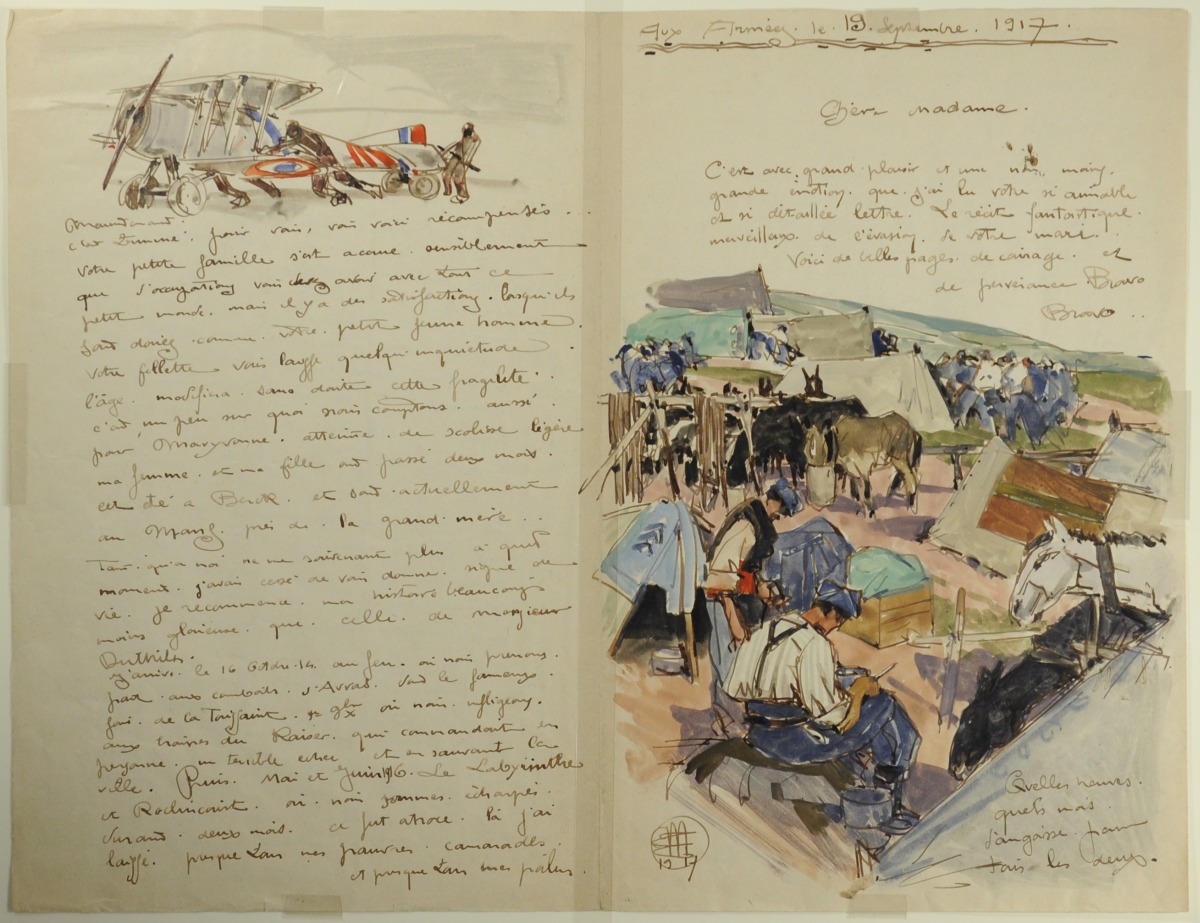 Aux Armées. le. 19. Septembre. 1917.
Chère Madame.
C'est avec grand plaisir et une non moins
grande émotion. que j'ai lu votre si aimable
et si détaillée lettre. Le récit fantastique.
merveilleux. de l'évasion. de votre mari.
Voici de belles pages. de courage. et
de Bravo
Bravo ..
Quelles heures.
quels mois
d'angoisse. pour
tous les deux.
1917
Maintenant
c'est terminé. pour vous, vous voici récompensés ...
votre petite famille s'est accrue. sensiblement
que d'occupations vous avoir avec tout ce
petit monde. mais il y a des satisfactions. lorsqu'ils
sont comme. votre. petit jeune homme.
votre fillette vous laisse quelqu'inquiétude
l'âge. modifiera sans doute cette fragilité.
c'est un peu sur quoi nous comptons. aussi
pour Maryvonne. atteinte. de scoliose légère
ma femme. et ma fille ont passé deux mois.
cet été à Berck. et sont actuellement
au Mans. près de. la grand-mère..
Tant qu'à moi ne me souvenant plus à quel
moment. j'avais cessé de vous donner. signe de
vie. je recommence. mon histoire beaucoup
moins glorieuse. que. celle. de monsieur
j'arrive. le 16 au feu. où nous prenons.
part aux combats. d'Arras. dont le fameux.
jour. de la Toussaint. où nous infligeons.
aux troupes du Kaiser. qui commandait en
personne. un terrible échec et en sauvant la
ville. Puis. Mai et Juin Le Labyrinthe
et Roclincourt. où. nous sommes. écharpés.
durant. deux mois. ce fut atroce. là j'ai
laissé. presque tous mes pauvres. camarades.
et presque tous mes poilus.